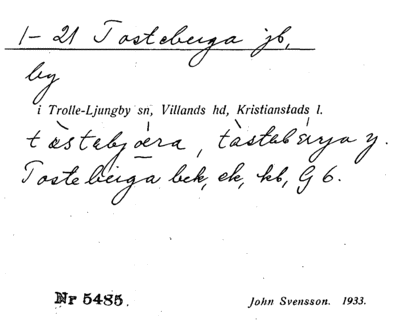 1-21 Tosteberga jb,
by
i Trolle-Ljungby sn, Villands hd, Kristianstads l.
tàstabjǽra, tàstabérya y.
Tosteberga bek, ek, kb, G 6.
Nr 5485.
John Svensson. 1933.